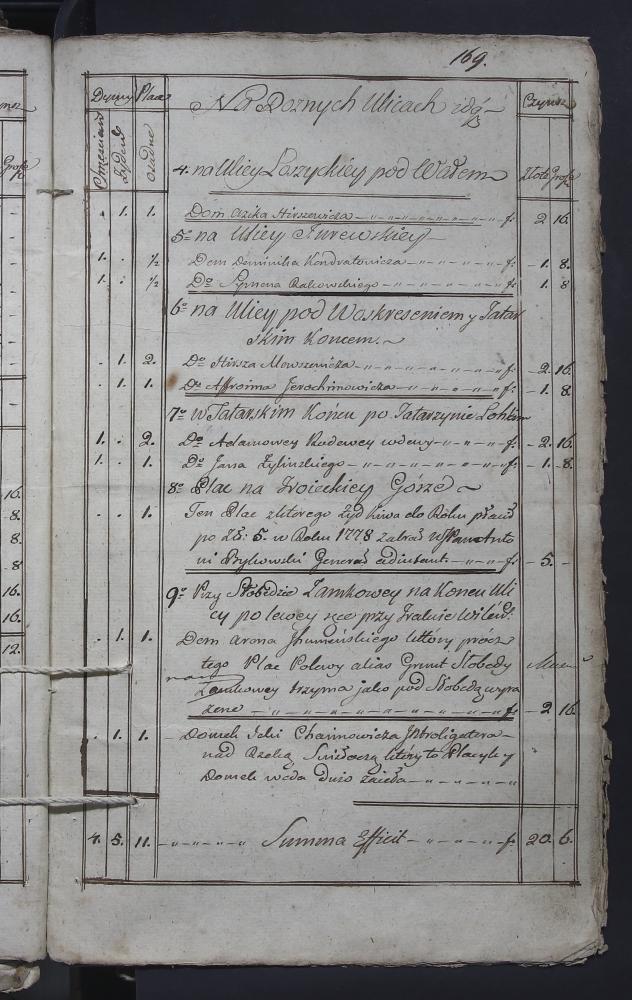 169.
Dymy Place Czynsz
Na Roznych Ulicach idą
Chrześcian Żydows. Osiadłe
4. na Ulicy Łoszyckiey pod Wałem Złote Grosz
. 1. 1. Dom Aizika Hirszewicza f: 2 16.
5º na Ulicy Jurewskiey
1. . ½ Dom Dominika Kondratowicza f: 1. 8.
1. . ½ Dº Symona Rakowskiego f: 1. 8
6º na Ulicy pod Woskreseniem y Tatar
skim Koncem
. 1. 2. Dº Hirsza Mowszewicza f: 2. 16.
. 1. 1. Dº Affroima Jerochimowicza f: 1. 8.
7º w Tatarskim Końcu po Tatarzynie
1. . 2. Dº Adamowey Rudewey wdowy f: 2. 16.
1. . 1. Dº Jana Żylinskiego f: 1. 8.
8º Plac na Troieckiey Gorze
. . 1. Ten Plac z ktorego Żyd Kiwa do Roku płacił
po Zł: 5. w Roku 1778 zabrał WJPan Anto
ni Bykowski Generał adiutant f: 5.
9º Przy Słobodzie Zamkowey na Koncu Uli
cy po lewey ręce przy Trakcie Wileń:
. 1. 1. Dom Arona Jhumeńskiego ktory procz
tego Plac Polowy alias Grunt Słobody
Zamkowey trzyma jako pod Słobodą wyra
żone f: 2 16.
. 1. 1. Domek Icki Chaimowicza Jntroligatora
nad Rzeką Swisłoczą ktory to Placyk y
Domek woda dużo zaieła
4. 5. 11. Summa Efficit f: 20. 6.